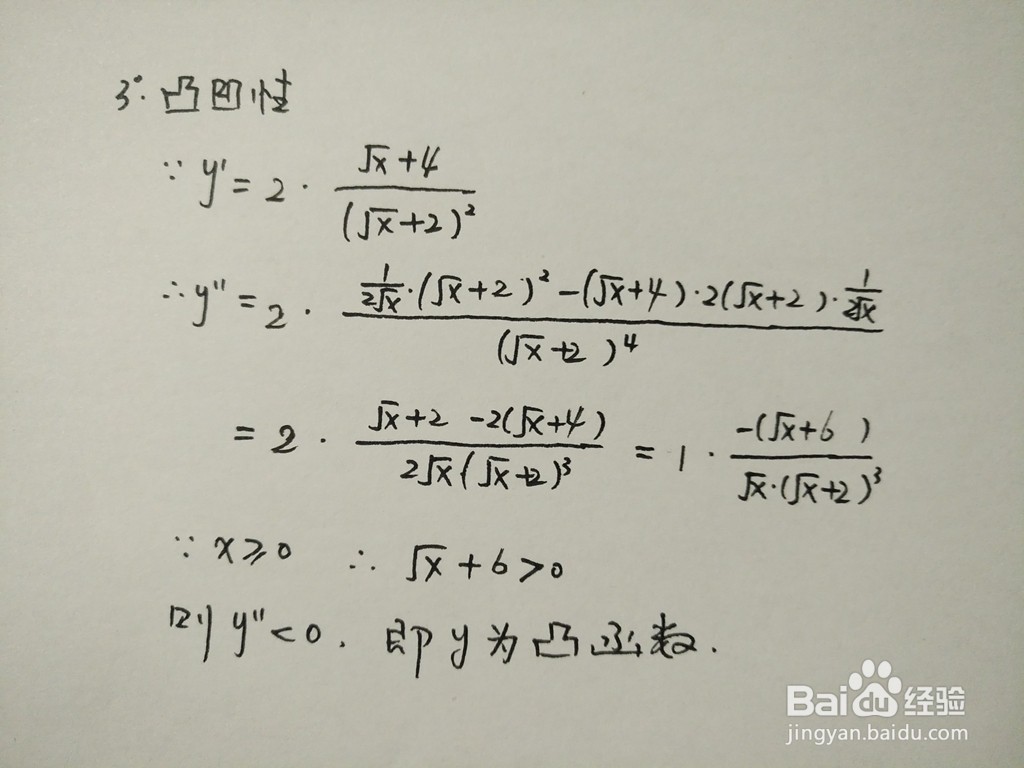 3°. 凸凹性
∵ y' = 2 · (√x+4)/(√x+2)²
∴ y'' = 2 · (1/(2√x)·(√x+2)²−(√x+4)·2(√x+2)·1/(2√x))/(√x+2)⁴
= 2 · (√x+2 −2(√x+4))/(2√x(√x+2)³) = 1 · (−(√x+6))/(√x·(√x+2)³)
∵ x≥0 ∴ √x+6>0
则 y''<0. 即 y 为凸函数.
Bai 经验
jingyan.baidu.com